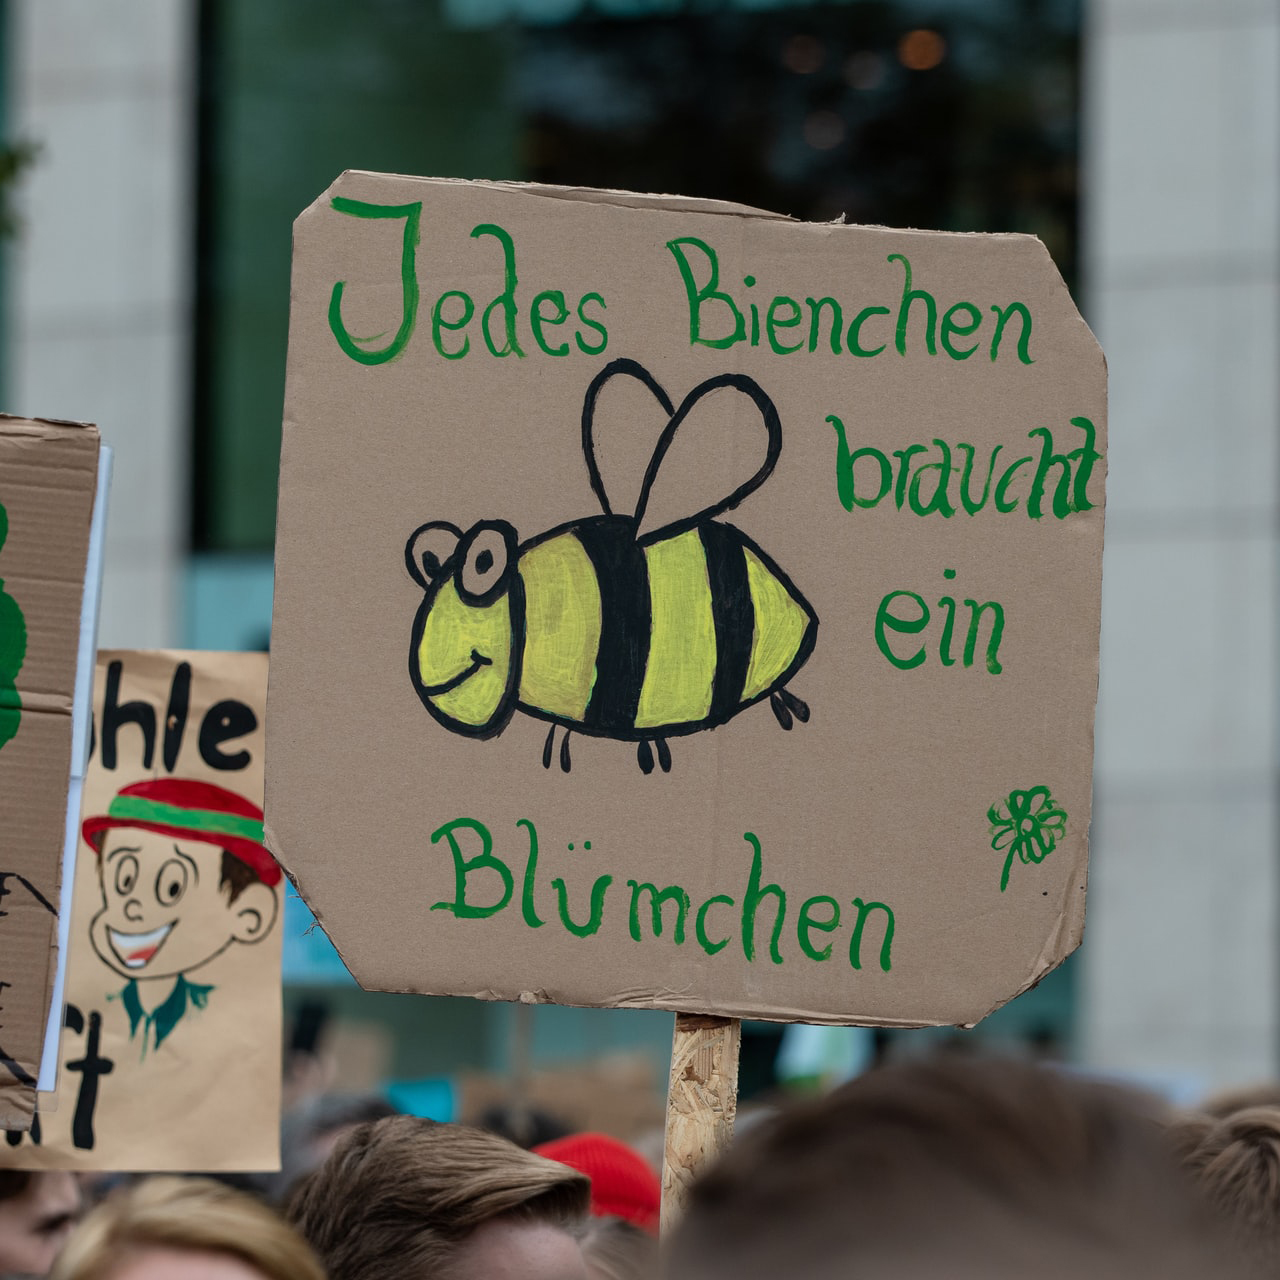 Jedes Bienchen
braucht
ein
Blümchen